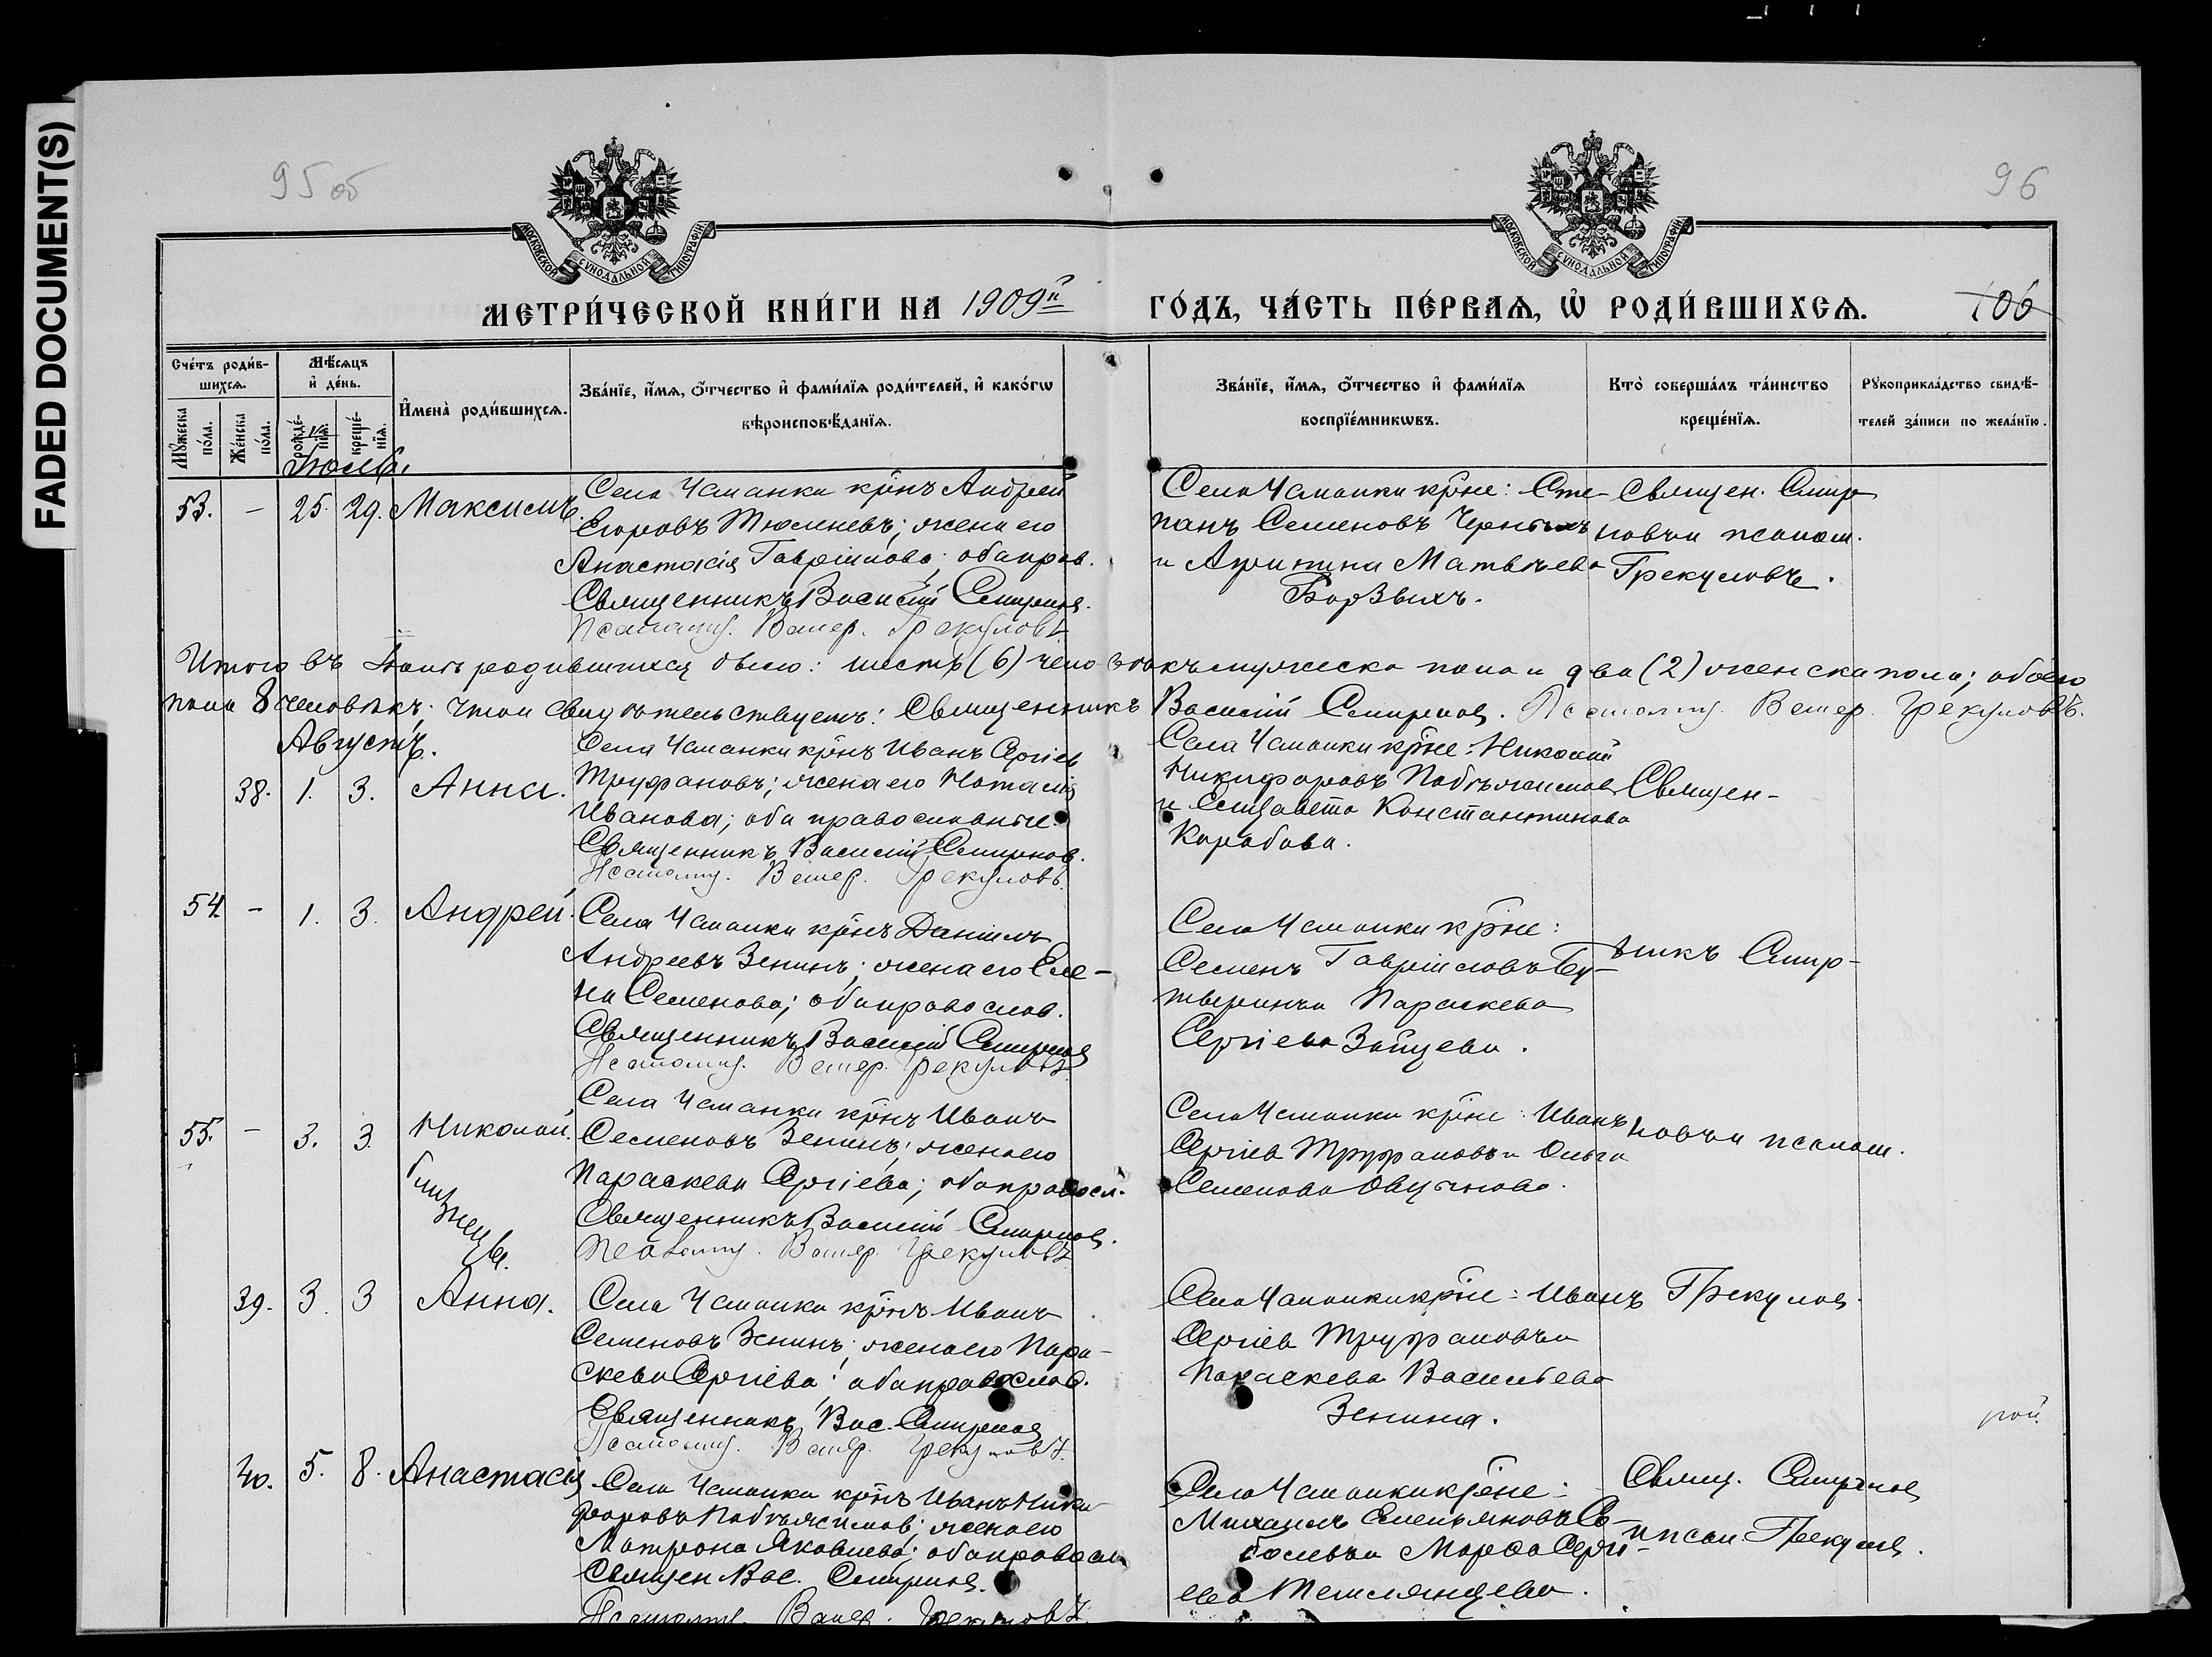 FADED DOCUMENT(S)
95 об
96
МОСКОВСКОЙ СѴНОДАЛЬНОЙ ТИПОГРАФІИ
МОСКОВСКОЙ СѴНОДАЛЬНОЙ ТИПОГРАФІИ
МЕТРИ́ЧЕСКОЙ КНИ́ГИ НА 1909й
ГО́ДЪ, ЧА́СТЬ ПЕ́РВАѦ, Ѡ҆ РОДИ́ВШИХСѦ.
106
Сче́тъ роди́в-
шихсѧ.
Мꙋ́жеска по́ла.
Же́нска по́ла.
Мѣ́сѧцъ
и҆ де́нь.
рожде́-нїѧ.
креще́-нїѧ.
И҆мена̀ роди́вшихсѧ.
Зва́нїе, и҆́мѧ, ѻ҆́тчество и҆ фами́лїѧ роди́телей, и҆ како́гѡ
вѣроисповѣ́данїѧ.
Зва́нїе, и҆́мѧ, ѻ҆́тчество и҆ фами́лїѧ
воспрїе́мникѡвъ.
Кто̀ соверша́лъ та́инство
креще́нїѧ.
Рꙋкоприкла́дство свидѣ́-
телей за́писи по жела́нїю.
Іюль.
53. - 25. 29. Максимъ
Села Чаманки крнъ Андрей
Егоровъ Тюменевъ; жена его
Анастасія Гавріилова; оба прав.
Священникъ Василій Смирнов.
Псаломщ. Валер. Грекуловъ
Села Чаманки крне: Сте-
панъ Семеновъ Черныхъ
и Агрипина Матвѣева
Борзвыхъ.
Священ. Смир
новъ и псалом.
Грекуловъ.
Итого въ Іюлѣ родившихся было: шесть (6) человѣкъ мужеска пола и два (2) женска пола; обоего
пола 8 человѣкъ; что и свидѣтельствуемъ: Священникъ Василій Смирнов. Псаломщ. Валер. Грекуловъ.
Августъ.
38. 1. 3. Анна.
Села Чаманки крнъ Иванъ Сергіев
Труфановъ; жена его Наталія
Иванова; оба православные.
Священникъ Василій Смирнов.
Псаломщ. Валер. Грекуловъ.
Села Чаманки крне: Николай
Никифоровъ Побѣжимов
и Елизавета Константинова
Карабова.
Священ-
54. - 1. 3. Андрей.
Села Чаманки крнъ Даніилъ
Андреевъ Зенинъ; жена его Еле-
на Семенова; оба православ.
Священникъ Василій Смирнов
Псаломщ. Валер. Грекуловъ
Села Чаманки крне:
Семенъ Гавріиловъ Бу-
тыринъ и Параскева
Сергіева Зайцева.
никъ Смир-
55. - 3. 3. Николай.
близнецы.
Села Чаманки крнъ Иванъ
Семеновъ Зенинъ; жена его
Параскева Сергіева; оба правосл.
Священникъ Василій Смирнов.
Псаломщ. Валер. Грекуловъ
Села Чаманки крне: Иванъ
Сергіев Труфановъ и Ольга
Семенова Овчинова.
новъ и псалом.
39. 3. 3 Анна.
Села Чаманки крнъ Иванъ
Семеновъ Зенинъ; жена его Пара-
скева Сергіева; оба православ.
Священникъ Вас. Смирнов
Псаломщ. Валер. Грекуловъ.
Села Чаманки крне: Иванъ
Сергіев Труфановъ и
Параскева Васильева
Зенина.
Грекулов.
40. 5. 8. Анастасія
Села Чаманки крнъ Иванъ Ники-
форовъ Побѣжимов; жена его
Матрона Яковлева; оба правосл.
Священ. Вас. Смирнов.
Псаломщ. Валер. Грекуловъ
Села Чаманки крне:
Михаилъ Емельяновъ Со-
болевъ и Марѳа Серги-
ева
Свящ. Смирнов
и псал. Грекулов.